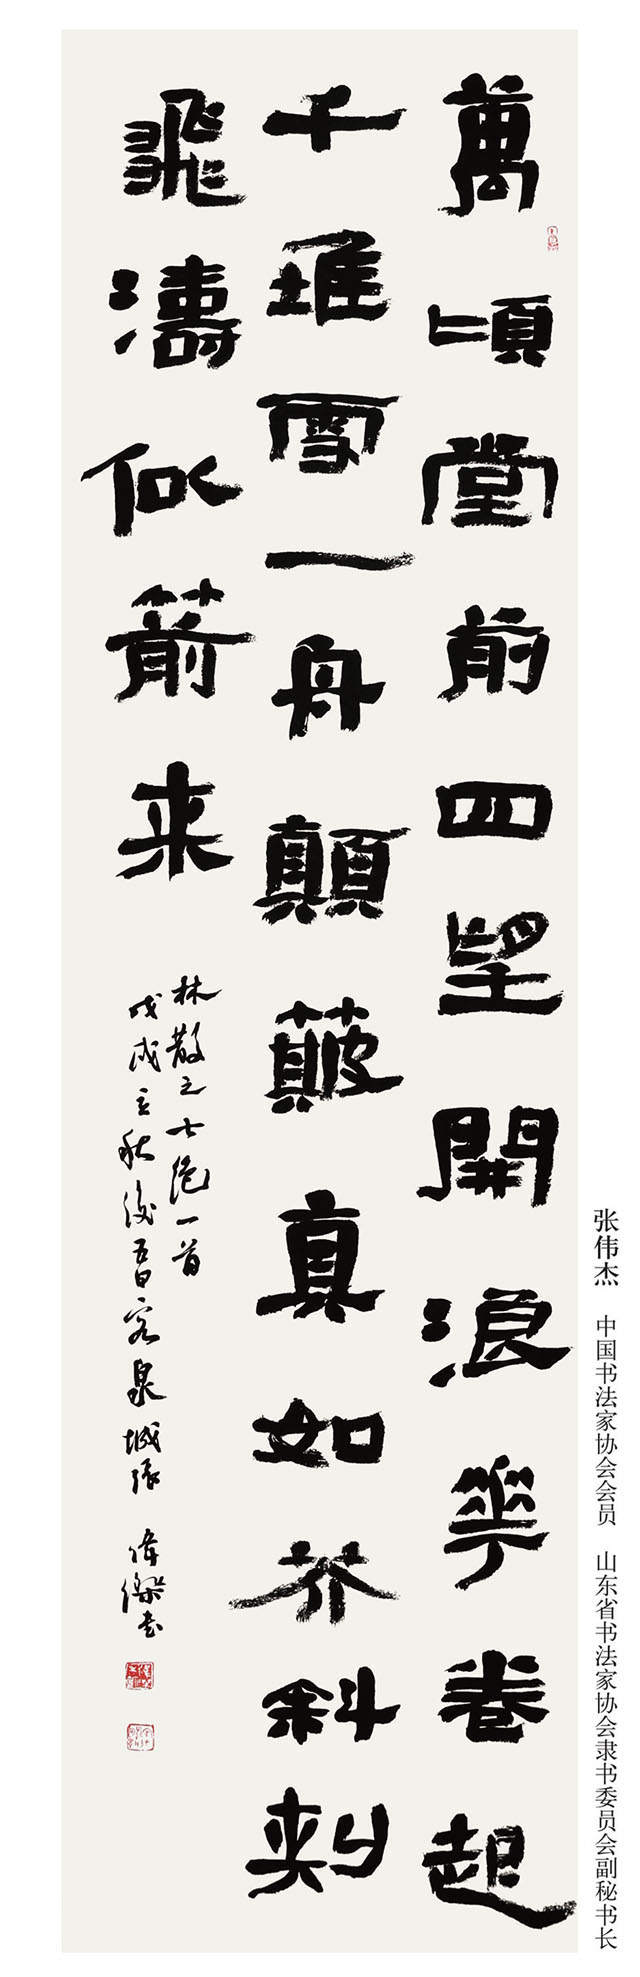 萬頃堂前四望開浪華卷起
千堆雪一舟顛簸真如芥斜刺
飛濤似箭来
林散之七绝一首
戊戌立秋後五日客泉城張偉傑書
张伟杰 中国书法家协会会员 山东省书法家协会隶书委员会副秘书长